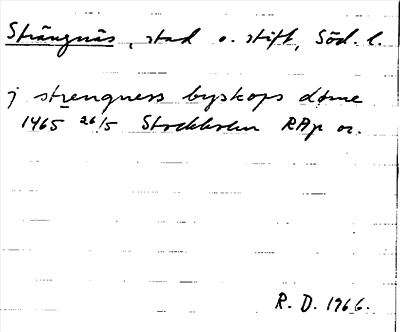 Strängnäs, stad o. stift, Söd. l.
j strengness byskops døme
1465 26/5 Stockholm RAp or.
R. D. 1966.